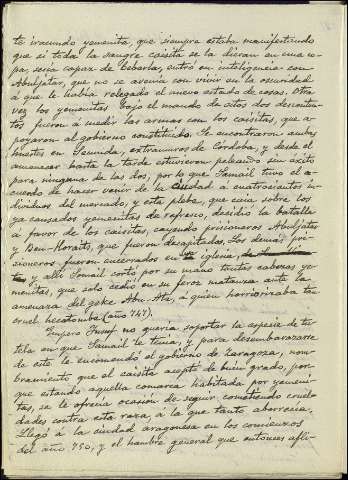 te iracundo yemenita, que siempre estaba manifestando
que si toda la sangre caisita se la dieran en una co-
pa, sería capaz de beberla, entró en inteligencia con
Abuljatar, que no se avenía con vivir en la oscuridad
á que le había relegado el nuevo estado de cosas. Otra
vez los yemenitas bajo el mando de estos dos desconten-
tos fueron á medir las armas con los caisitas, que a-
poyaron al gobierno constituido. Se encontraron ambas
huestes en Secunda, extramuros de Córdoba, y desde el
amanecer hasta la tarde estuvieron peleando sin éxito
para ninguna de las dos, por lo que Samail tuvo el a-
cuerdo de hacer venir de la ciudad á cuatrocientos in-
dividuos del mercado, y esta plebe, que caía sobre los
ya cansados yemenitas de refresco, decidió la batalla
á favor de los caisitas, cayendo prisioneros Abuljatar
y Ben-Horaits, que fueron decapitados. Los demás pri-
sioneros fueron encerrados en una iglesia,
y allí Samail cortó por su mano tantas cabezas ye-
menitas, que solo cedió en su feroz matanza ante la
amenaza del geke Abu-Ata, á quien horrorizaba tan
cruel hecatombe (año 747).
Empero Yusuf no quería soportar la especie de tu-
tela en que Samail le tenía, y para desembarazarse
de este le encomendó el gobierno de Zaragoza, nom-
bramiento que el caisita aceptó de buen grado, por-
que estando aquella comarca habitada por yemeni-
tas, se le ofrecía ocasión de seguir cometiendo cruel-
dades contra esta raza, á la que tanto aborrecía.
Llegó á la ciudad aragonesa en los comienzos
del año 750, y el hambre general que entonces afli-